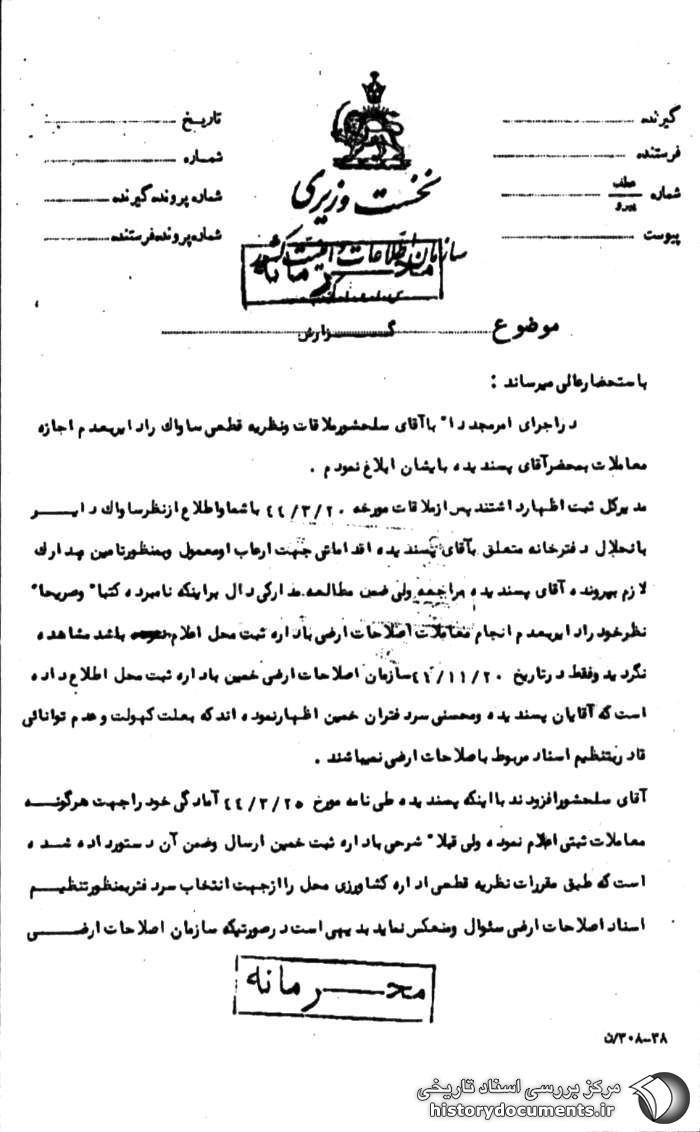 گیرنده
فرستنده
شماره عطف پیرو
پیوست
تاریخ
شماره
شماره پرونده گیرنده
شماره پرونده فرستنده
نخست وزیری
سازمان اطلاعات و امنیت کشور
محرمانه
موضوع گزارش
باستحضار عالی میرساند :
در اجرای امر مجددا" با آقای سلحشور ملاقات و نظریه قطعی ساواک را دایر بعدم اجازه
معاملات بمحضر آقای پسندیده بایشان ابلاغ نمودم .
مدیر کل ثبت اظهار داشتند پس از ملاقات مورخه ۴۴/۳/۲۰ با شما و اطلاع از نظر ساواک دایر
بانحلال دفترخانه متعلق بآقای پسندیده اقداماتی جهت ارعاب او معمول و بمنظور تامین مدارک
لازم بپرونده آقای پسندیده مراجعه ولی ضمن مطالعه مدارکی دال بر اینکه نامبرده کتبا" و صریحا"
نظر خود را دایر بعدم انجام معاملات اصلاحات ارضی باداره ثبت محل اعلام نموده باشد مشاهده
نگردید و فقط در تاریخ ۴۲/۱۱/۲۰ سازمان اصلاحات ارضی خمین باداره ثبت محل اطلاع داده
است که آقایان پسندیده و محسنی سردفتران خمین اظهار نموده اند که بعلت کهولت و عدم توانائی
قادر بتنظیم اسناد مربوط باصلاحات ارضی نمیباشند .
آقای سلحشور افزودند با اینکه پسندیده طی نامه مورخ ۴۴/۳/۲۵ آمادگی خود را جهت هرگونه
معاملات ثبتی اعلام نموده ولی قبلا" شرحی باداره ثبت خمین ارسال و ضمن آن دستور داده شده
است که طبق مقررات نظریه قطعی اداره کشاورزی محل را از جهت انتخاب سردفتر بمنظور تنظیم
اسناد اصلاحات ارضی سئوال و منعکس نماید بدیهی است در صورتیکه سازمان اصلاحات ارضی
محرمانه
۳۰۸-۳۸/ن
مرکز بررسی اسناد تاریخی
historydocuments.ir